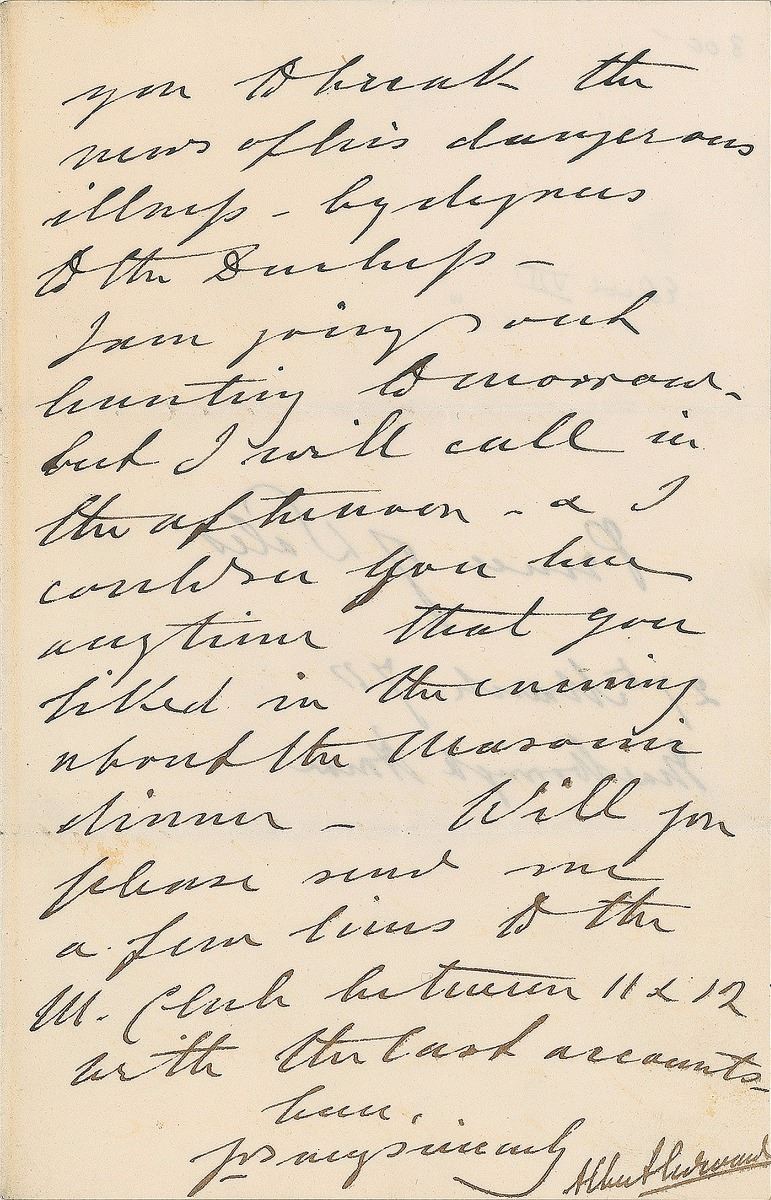 you to break the
news of his dangerous
illness - by degrees
to the Duchess -
I am going out
hunting tomorrow -
but I will call in
the afternoon - & I
could see you here
anytime that you
liked in the evening
about the Masonic
dinner - Will you
please send me
a few lines to the
M. Club between 11 & 12
with the last accounts -
yrs very sincerely
Albert Edward